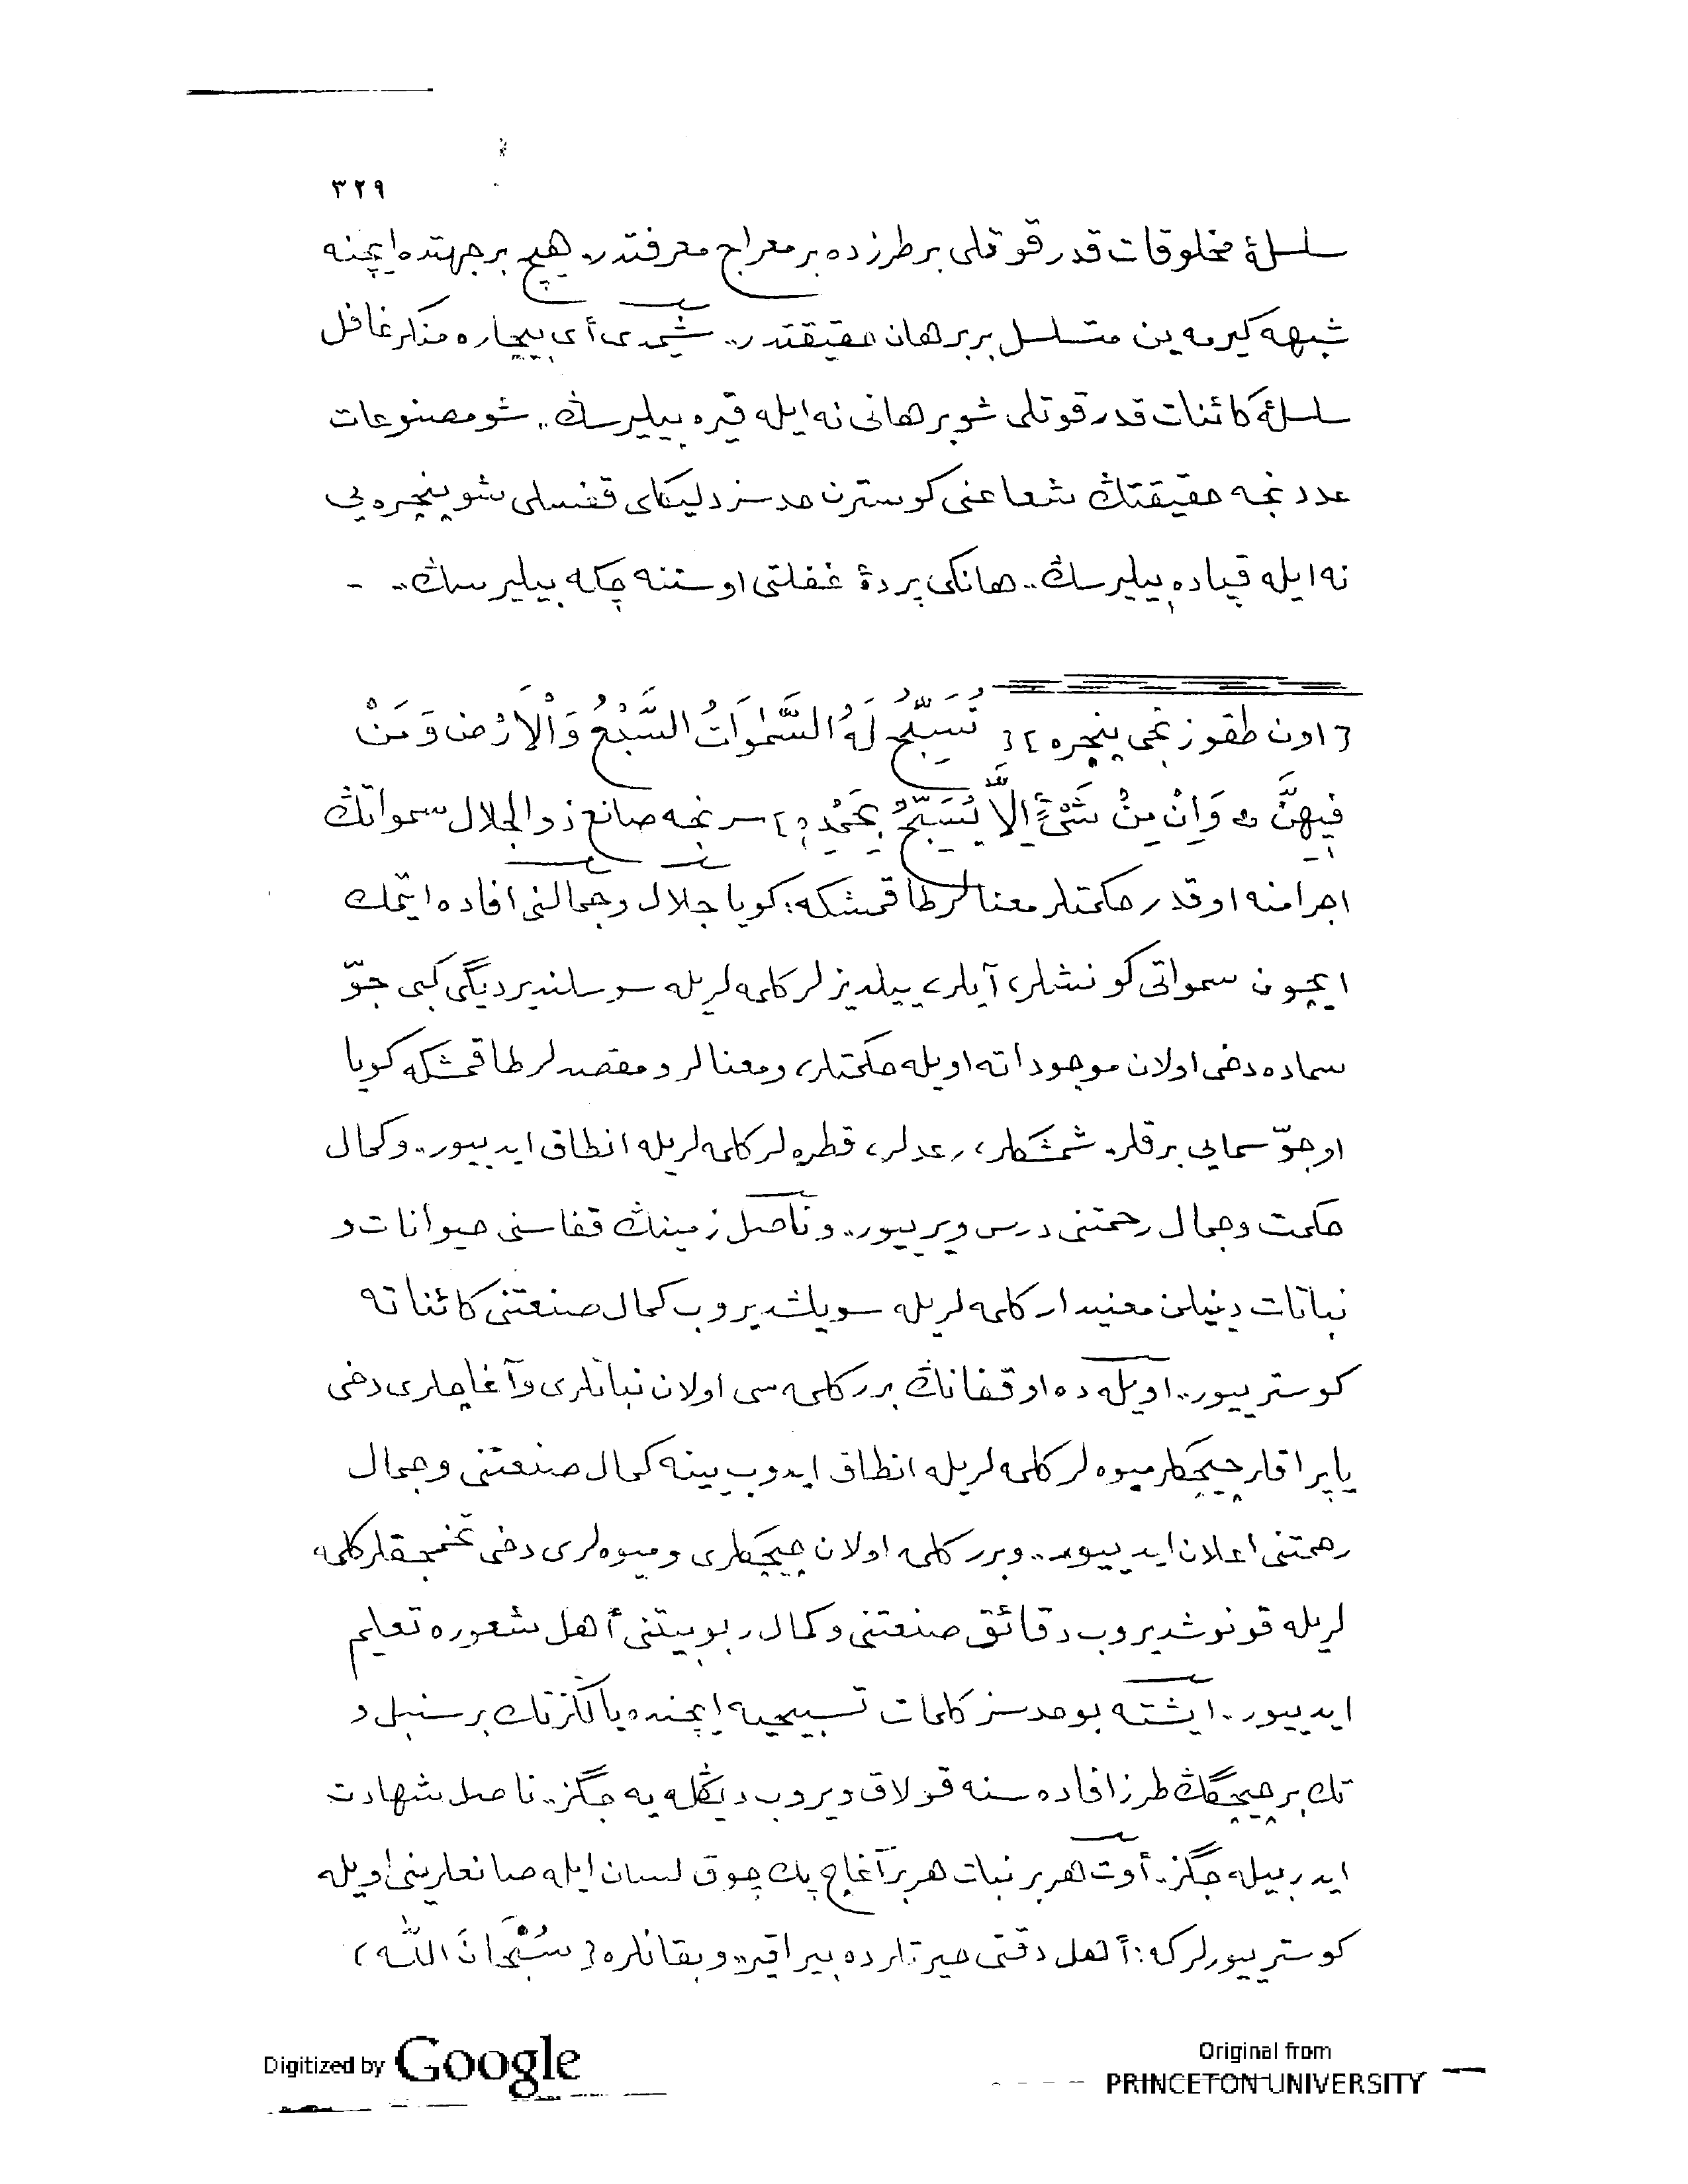 ٣٢٩
سلسلۀ مخلوقات قدر قوتلی بر طرزده بر معراج معرفتدر. هیچ بر جهتده ایچنه
شبهه كیرمه ین متسلسل بر برهان حقیقتدر.. شیمدی أی بیچاره منكر غافل
سلسلۀ كائنات قدر قوتلی شو برهانی نه ایله قیره بیلیرسڭ.. شو مصنوعات
عددنجه حقیقتڭ شعاعنی كوسترن حدسز دلیكلی قفسلی شو پنجره یی
نه ایله قپاده بیلیرسڭ.. هانكی پردۀ غفلتی اوستنه چكه بیلیرسڭ.. -
[اون طقوزنجی پنجره] { تُسَبِّحُ لَهُ السَّمٰوَاتُ السَّبْعُ وَاْلاَرْضُ وَمَنْ
فِيهِنَّ ۞ وَاِنْ مِنْ شَيْءٍ اِلاَّ يُسَبِّحُ بِحَمْدِهِ } سرنجه صانع ذو الجلال سمواتڭ
اجرامنه او قدر حكمتلر معنالر طاقمشكه: كویا جلال و جمالنی افاده ایتمك
ایچون سمواتی كونشلر، آیلر، ییلدیزلر كلمه لریله سوسلندیردیگی كبی جوّ
سماده دخی اولان موجوداته اویله حكمتلر، و معنالر و مقصدلر طاقمشكه كویا
او جوّ سمایی برقلر. شمشكلر، رعدلر، قطره لر كلمه لریله انطاق ایدییور.. و كمال
حكمت و جمال رحمتنی درس ویرییور.. و ناصل زمینڭ قفاسنی حیوانات و
نباتات دینیلن معنیدار كلمه لریله سویلشدیروب كمال صنعتنی كائناته
كوستر ییور.. اویله ده او قفانڭ برر كلمه سی اولان نباتلری و آغاچلری دخی
یاپراقلر چیچكلر میوه لر كلمه لریله انطاق ایدوب یینه كمال صنعتنی و جمال
رحمتنی اعلان ایدییور.. و برر كلمه اولان چیچكلری و میوه لری دخی تخمجقلر كلمه
لریله قونوشدیروب دقائق صنعتنی و كمال ربوبیتنی أهل شعوره تعلیم
ایدییور.. ایشته بو حدسز كلمات تسبیحیه ایچنده یاڭلز تك بر سنبل و
تك بر چیچگڭ طرز افاده سنه قولاق ویروب دیڭله یه جگز.. ناصل شهادت
ایدر بیله جگز. أوت هر بر نبات هر بر آغاج پك چوق لسان ایله صانعلرینی اویله
كوستر ییورلر كه: أهل دقتی حیرتلرده بیراقیر.. و بقانلره { سُبْحَانَ اللّٰه )
Digitized by Google
Original from
PRINCETON UNIVERSITY